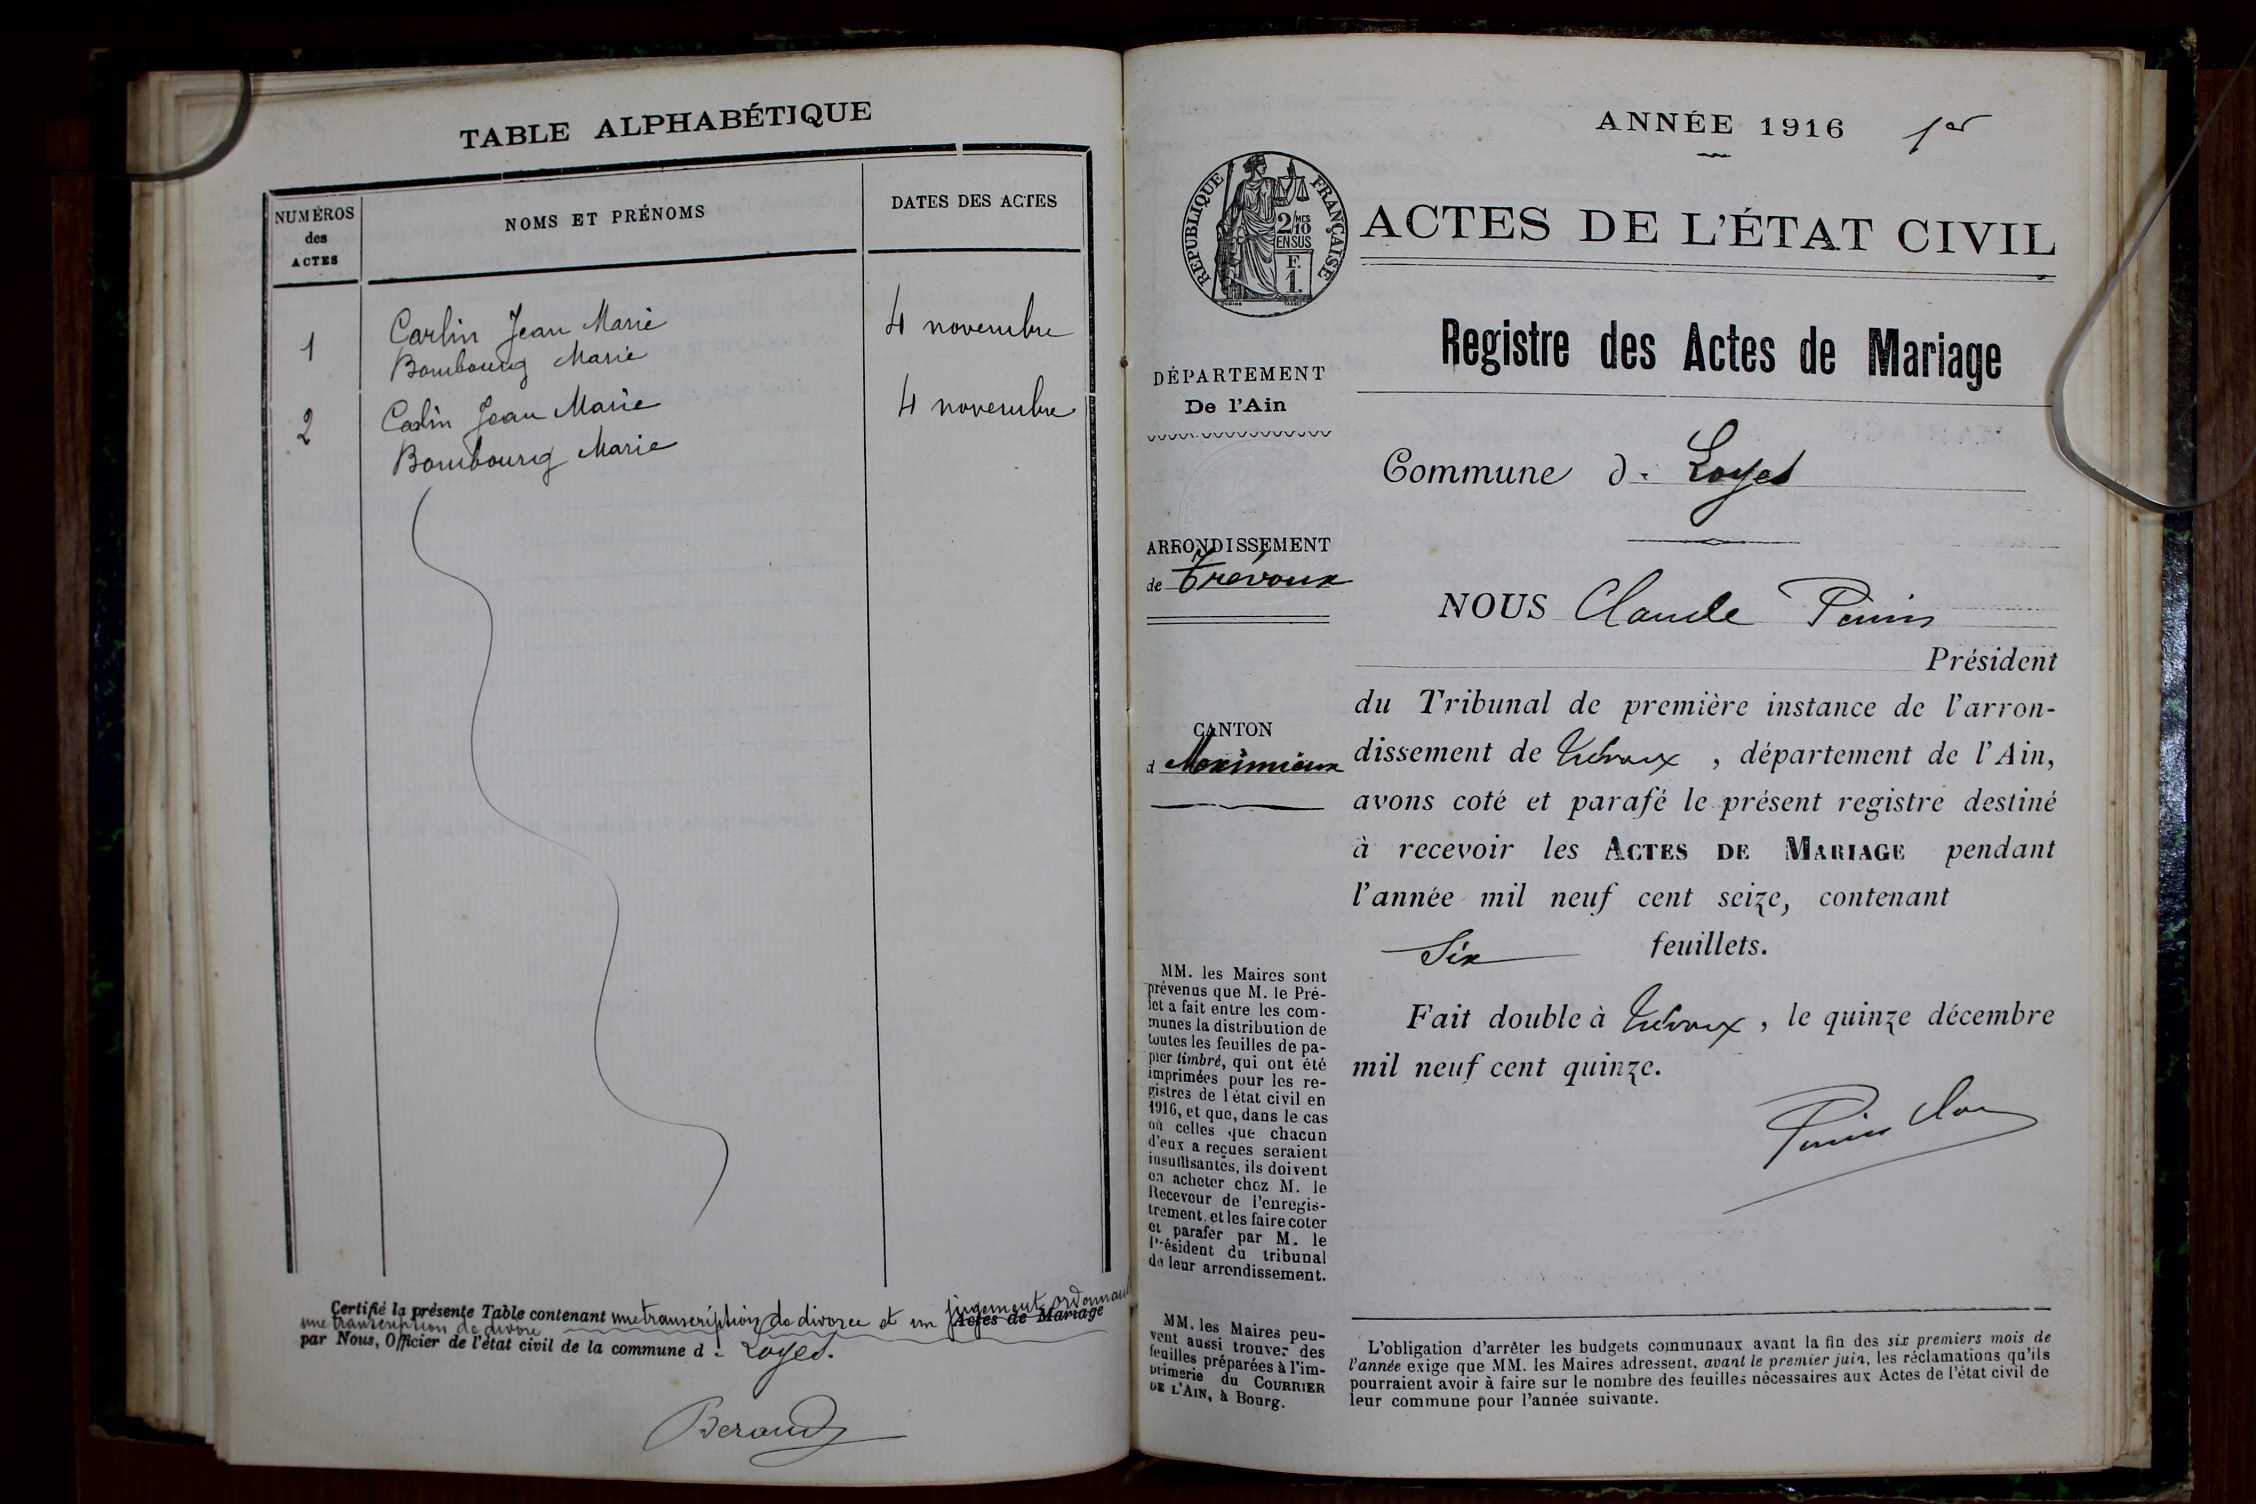 TABLE ALPHABÉTIQUE
NUMÉROS
des
ACTES
NOMS ET PRÉNOMS
DATES DES ACTES
1
Carlin Jean Marie
Bombourg Marie
4 novembre
2
Carlin Jean Marie
Bombourg Marie
4 novembre
Certifié la présente Table contenant une transcription de divorce et un jugement ordonnant
Actes de Mariage
une transcription de divorce
par Nous, Officier de l'état civil de la commune d. Loyes.
Beraud
ANNÉE 1916 1er
RÉPUBLIQUE FRANÇAISE
2/10 MES
EN SUS
F.
1.
ACTES DE L'ÉTAT CIVIL
Registre des Actes de Mariage
DÉPARTEMENT
De l'Ain
ARRONDISSEMENT
de Trévoux
CANTON
d Meximieux
MM. les Maires sont
prévenus que M. le Pré-
fet a fait entre les com-
munes la distribution de
toutes les feuilles de pa-
pier timbré, qui ont été
imprimées pour les re-
gistres de l'état civil en
1916, et que, dans le cas
où celles que chacun
d'eux a reçues seraient
insuffisantes, ils doivent
en acheter chez M. le
Receveur de l'enregis-
trement, et les faire coter
et parafer par M. le
Président du tribunal
de leur arrondissement.
MM. les Maires peu-
vent aussi trouver des
feuilles préparées à l'im-
primerie du COURRIER
DE L'AIN, à Bourg.
Commune d. Loyes
NOUS Claude
Président
du Tribunal de première instance de l'arron-
dissement de Trévoux, département de l'Ain,
avons coté et parafé le présent registre destiné
à recevoir les ACTES DE MARIAGE pendant
l'année mil neuf cent seize, contenant
Six feuillets.
Fait double à Trévoux, le quinze décembre
mil neuf cent quinze.
L'obligation d'arrêter les budgets communaux avant la fin des six premiers mois de
l'année exige que MM. les Maires adressent, avant le premier juin, les réclamations qu'ils
pourraient avoir à faire sur le nombre des feuilles nécessaires aux Actes de l'état civil de
leur commune pour l'année suivante.